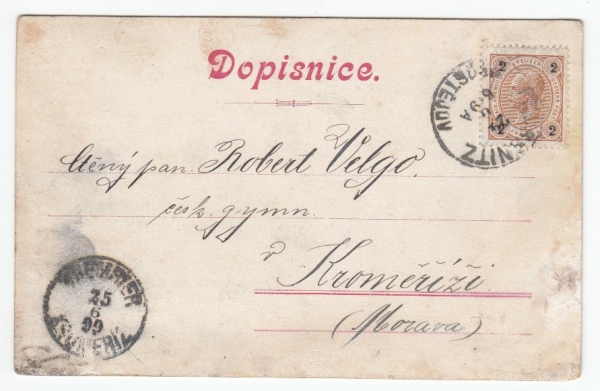 Dopisnice.
2 2
2 2
NITZ
OSTĚJOV
Ctěný pan. Robert Velgo.
česk. gymn.
v
Kroměříži.
(Morava)
25
6
99